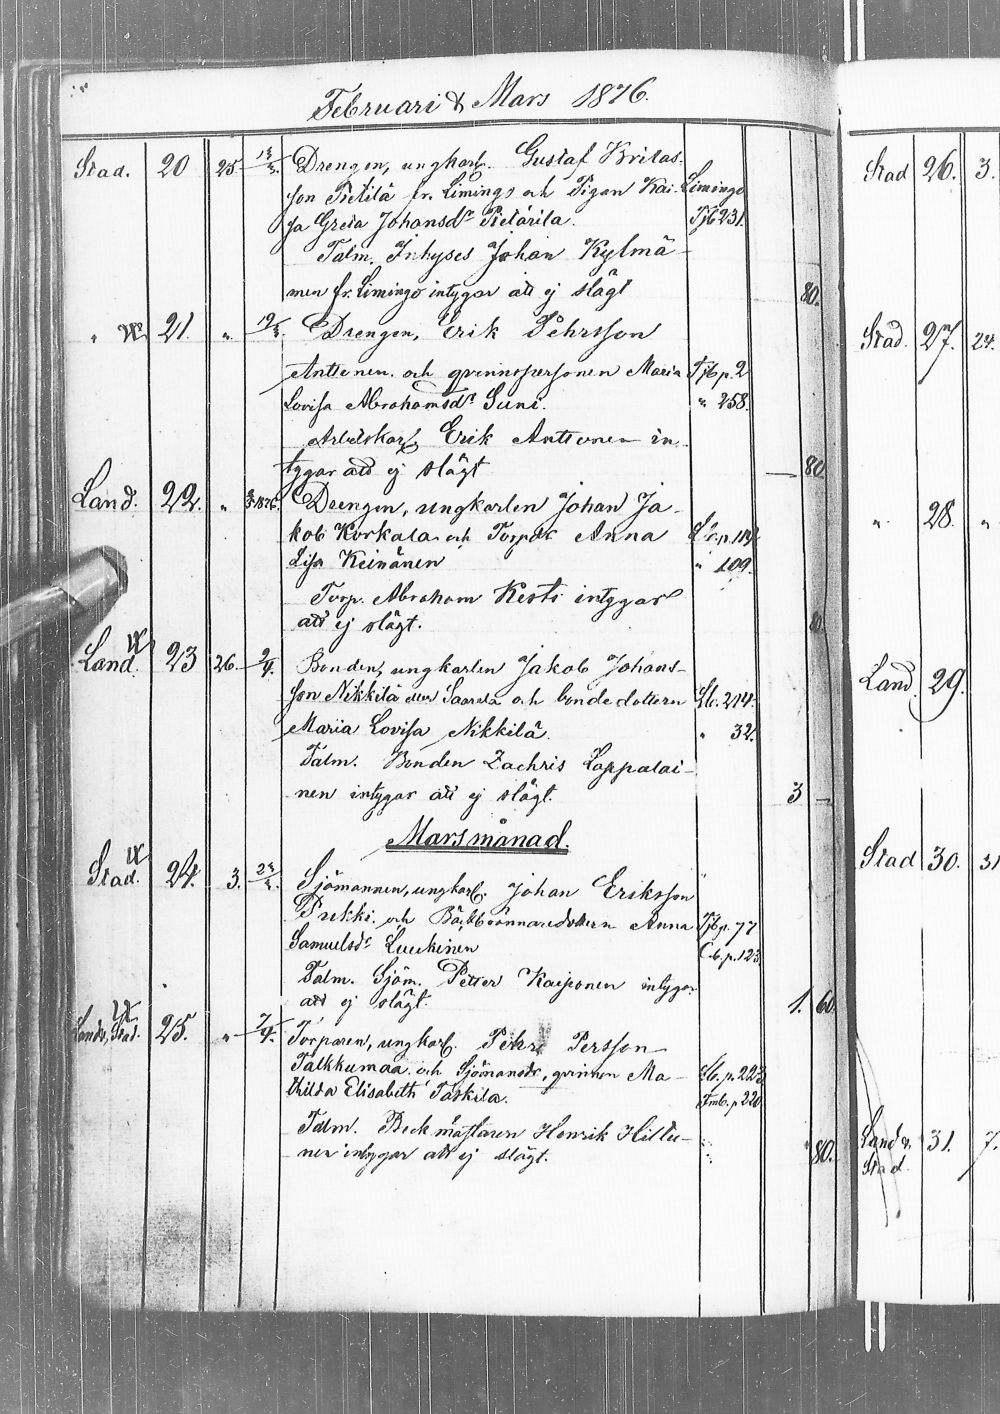 Februari & Mars 1876.
Stad. 20 25. Drengen, ungkarl. Gustaf Krilas-
son Pietilä fr. Limingo och Pigan Kai- Limingo
sa Greta Johansdr Pietärila. Tjb 231.
Talm. Inhyses Johan Kylmä-
nen fr. Limingo intygar att ej slägt 80.
" 21. " 19/3. Drengen, Erik Pehrsson
Anttonen. och qvinnspersonen Maria Tjb p. 2
Lovisa Abrahamsdr Suni. " 258.
Arbetskarl Erik Anttonen in-
tygar att ej slägt — 80
Land. 22. " Drengen, ungkarlen Johan Ja-
kob Korkala och Torpdr Anna
Lisa Keinänen " 109.
Torp. Abraham Kesti intygar
att ej slägt. 80.
Land. 23 26. 9/4. Bonden, ungkarlen Jakob Johans-
son Nikkilä eller Saarela och bondedottern Lb. 214.
Maria Lovisa Nikkilä. " 32.
Talm. Bonden Zachris Lappalai-
nen intygar att ej slägt. 3 —
Marsmånad.
Stad. 24. 3. Sjömannen, ungkarl. Johan Eriksson
Pukki. och Bäckbrännaredottern Anna Tjb p. 77
Samuelsdr Luukinen C.b. p. 123
Talm. Sjöm. Petter Kaiponen intygar
att ej slägt. 1. 60.
Land o. Stad. 25. " 7/4. Torparen, ungkarl. Pehr Persson
Talkkumaa och Sjömansdr, qvinnan Ma- Lb. p. 223
thilda Elisabeth Taskila. p. 220
Talm. Beckmästaren Henrik Hiltu-
nen intygar att ej slägt. " 80.
Stad 26. 3.
Stad. 27. 24.
" 28. "
Land. 29.
Stad 30. 31
Land o. 31. 7.
Stad.